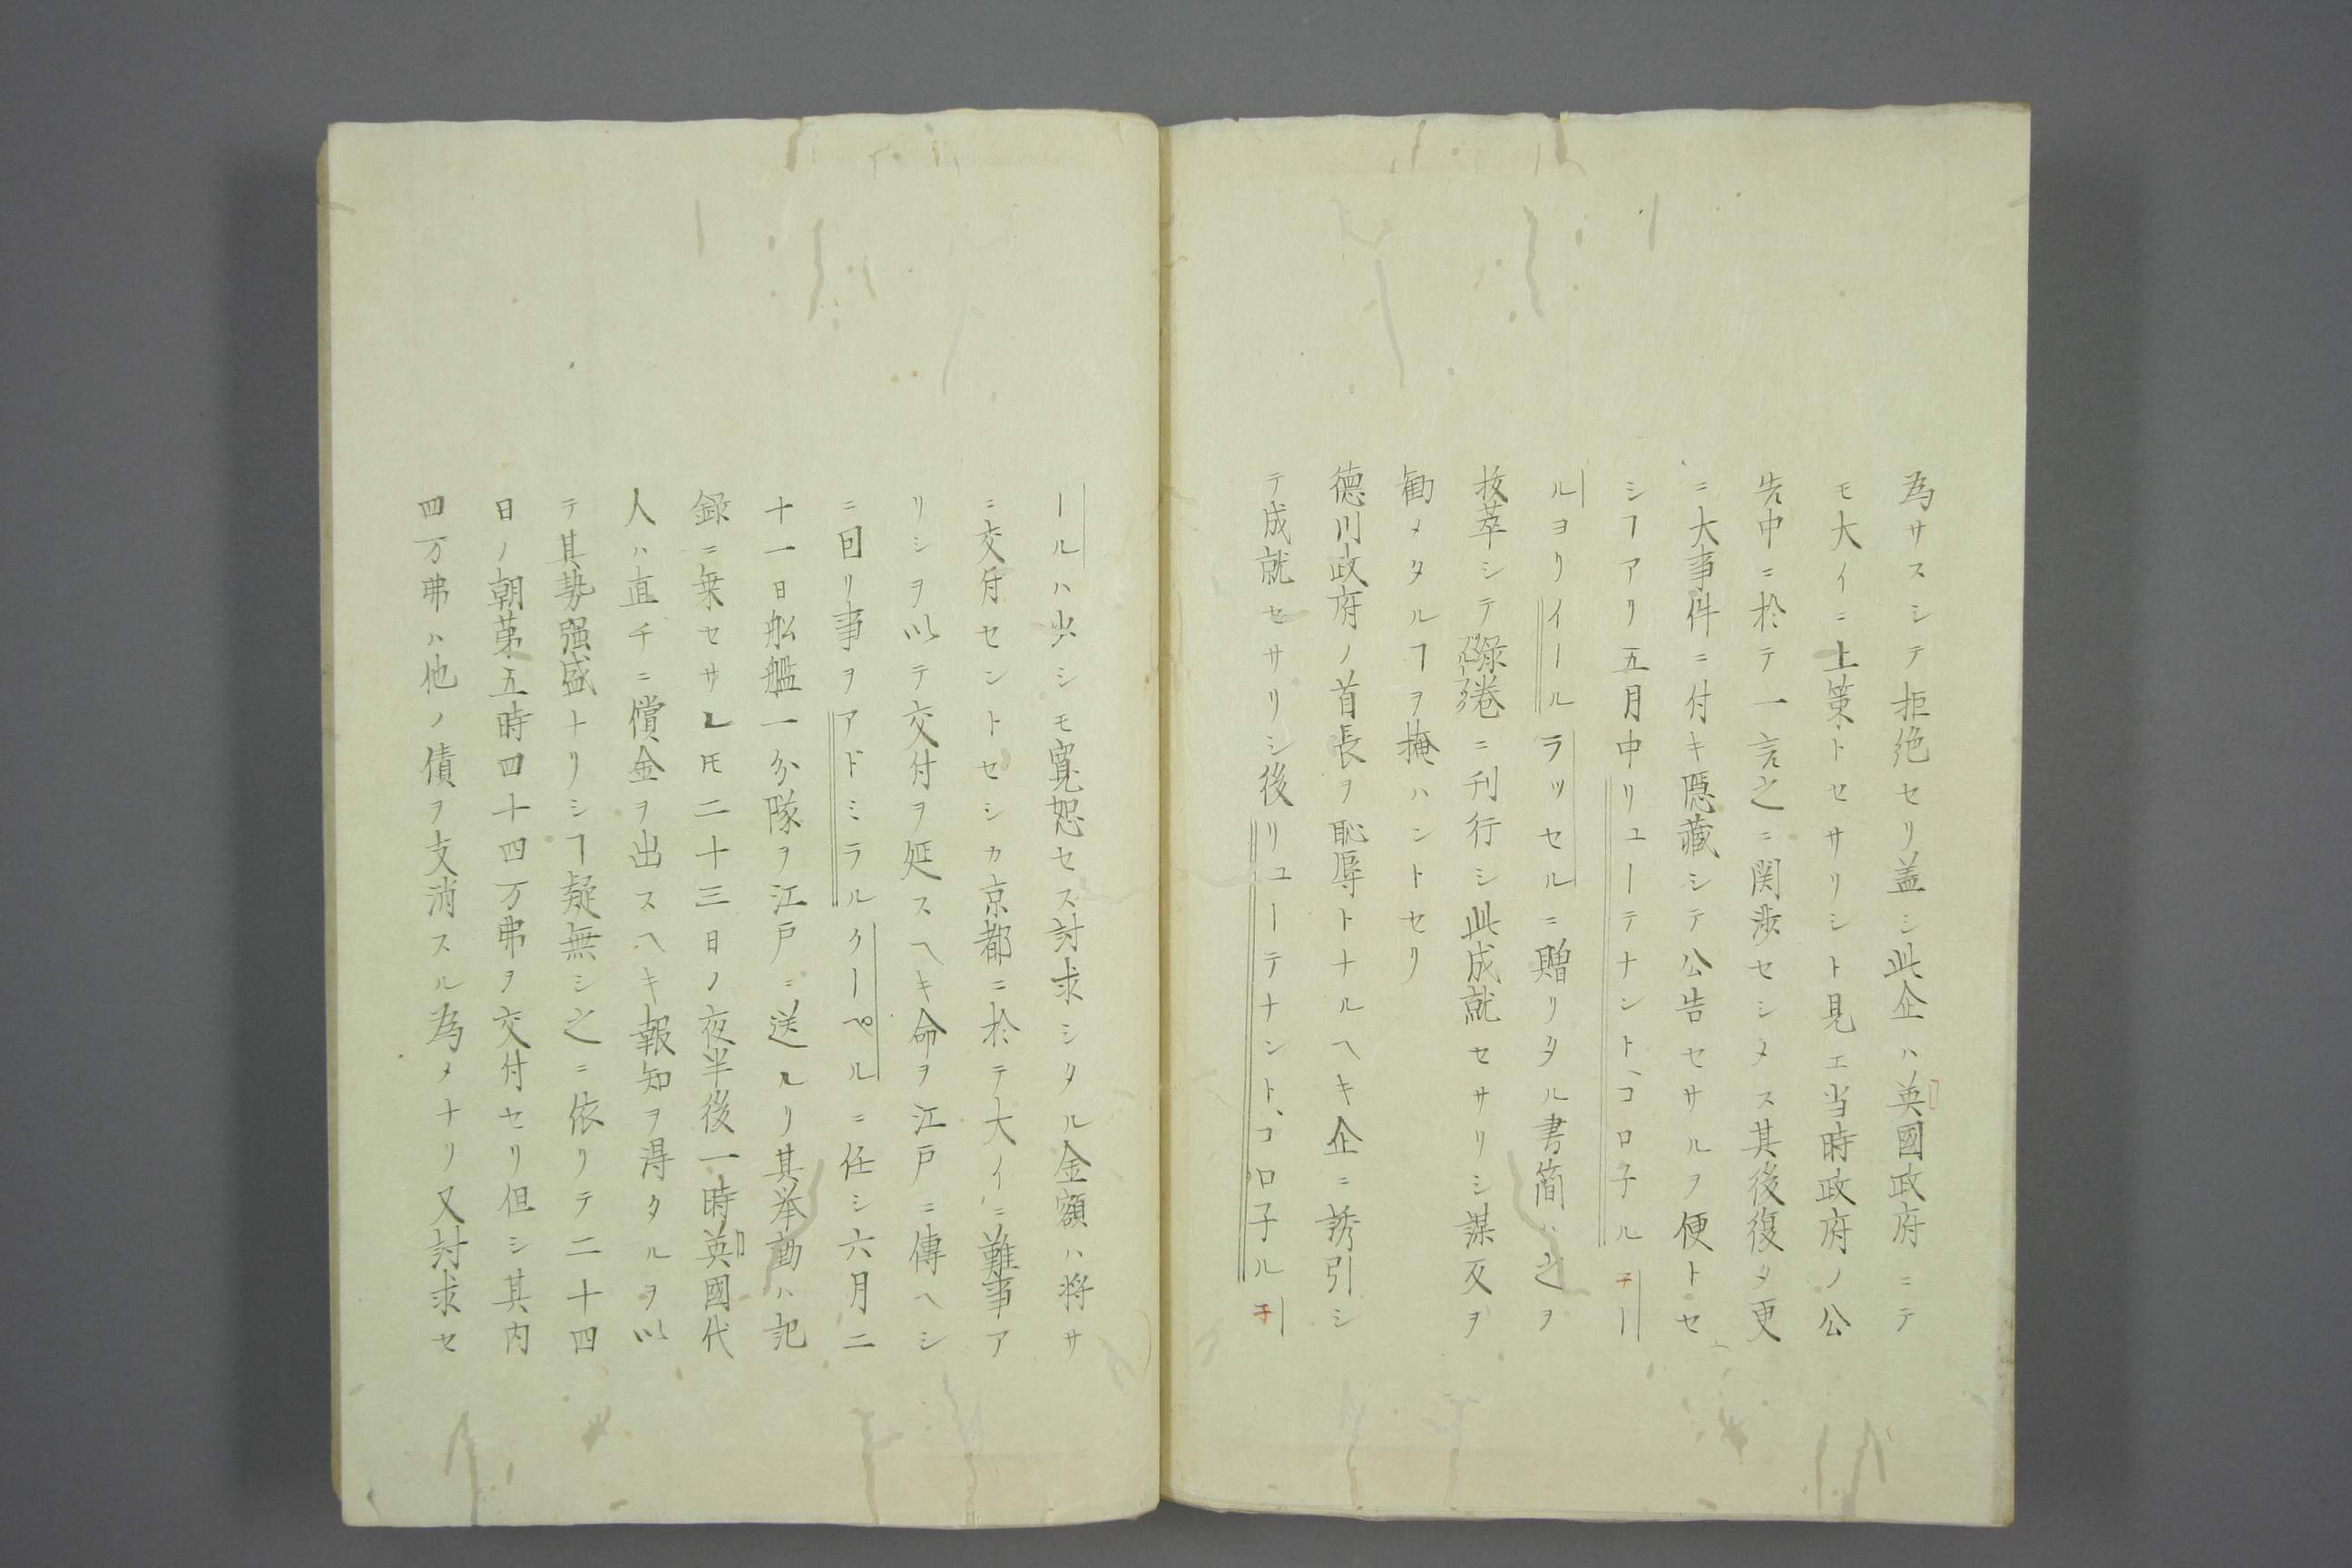 為サスシテ拒絶セリ盖シ此企ハ英國政府ニテ
モ大イニ上策トセサリシト見エ当時政府ノ公
告中ニ於テ一言之ニ関渉セシメス其後復タ更
ニ大事件ニ付キ隠藏シテ公告セサルヲ便トセ
シヿアリ五月中リユーテナント、コロ子ル子ー
ルヨリイールラッセルニ贈リタル書簡ハ之ヲ
抜萃シテ緑巻ニ刊行シ此成就セサリシ謀反ヲ
勧メタルヿヲ掩ハントセリ
徳川政府ノ首長ヲ恥辱トナルヘキ企ニ誘引シ
テ成就セサリシ後リユーテナント、コロ子ル子
ールハ少シモ寛恕セス討求シタル金額ハ将サ
ニ交付セントセシカ京都ニ於テ大イニ難事ア
リシヲ以テ交付ヲ延スヘキ命ヲ江戸ニ傳ヘシ
ニ回リ事ヲアドミラルクーペルニ任シ六月二
十一日船艦一分隊ヲ江戸ニ送レリ其挙動ハ記
録ニ乗セサレ𪜈二十三日ノ夜半後一時英國代
人ハ直チニ償金ヲ出スヘキ報知ヲ得タルヲ以
テ其勢强盛トナリシヿ疑無シ之ニ依リテ二十四
日ノ朝第五時四十四万弗ヲ交付セリ但シ其内
四万弗ハ他ノ債ヲ支消スル為メナリ又討求セ